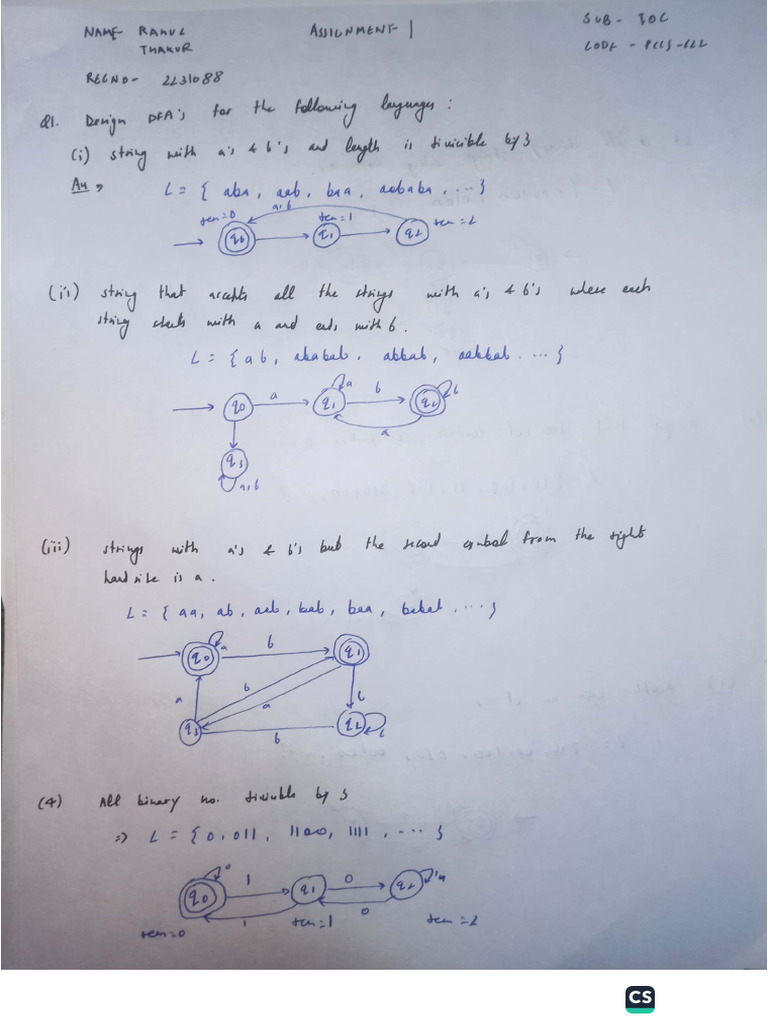 NAME- RAHUL THAKUR
ASSIGNMENT- 1
SUB- TOC
CODE - PCCS-
REGNO- 2231088
Q1. Design DFA's for the following languages :
(i) string with a's & b's and length is divicible by 3
An ⇒ L = { aba, aab, baa, aababa, ... }
a,b
rem=0 rem=1 rem=2
q0 q1 q2
(ii) string that accepts all the strings with a's & b's where each
string starts with a and ends with b.
L = { ab, ababab, abbab, aabbab. ... }
a b b
q0 a q1 q2
a
q3
a,b
(iii) strings with a's & b's but the second symbol from the right
hand side is a.
L = { aa, ab, aab, bab, baa, babab, ... }
q0 a b q1
a b a b
q3 b q2 b
(4) All binary no. divisible by 3
⇒ L = { 0, 011, 1100, 1111, ... }
0 1 0
q0 q1 q2
1 0
rem=0 rem=1 rem=2
CS